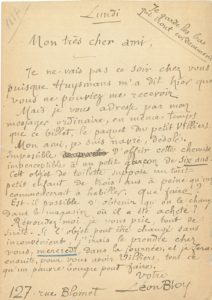 Lundi
Je garde les bas
qui vont
Mon très cher ami,
Je ne vais pas ce soir chez vous
puisque Huysmans m'a dit hier que
vous ne pouviez me recevoir.
Mais je vous adresse par mon
messager ordinaire, en même temps
que ce billet, le paquet du petit Villiers.
Mon ami, je suis navré, désolé.
Impossible d'offrir cette chemise
impossible à un petit garçon de six ans.
Cet objet de toilette suppose un
petit enfant de trois ans à peine
à habiller. Que faire?
Est-il possible d'obtenir qu'on le change
dans le magasin où il a été acheté?
Répondez moi, je vous prie, tout de
suite. Si l'objet peut être changé sans
inconvénient, je le prendre chez
vous, mercredi dans la journée, et j'irai
ensuite, pour vous avoir Villiers, tout ce
qu'un pauvre bougre peut faire.
Votre
Léon Bloy
127, rue Blomet